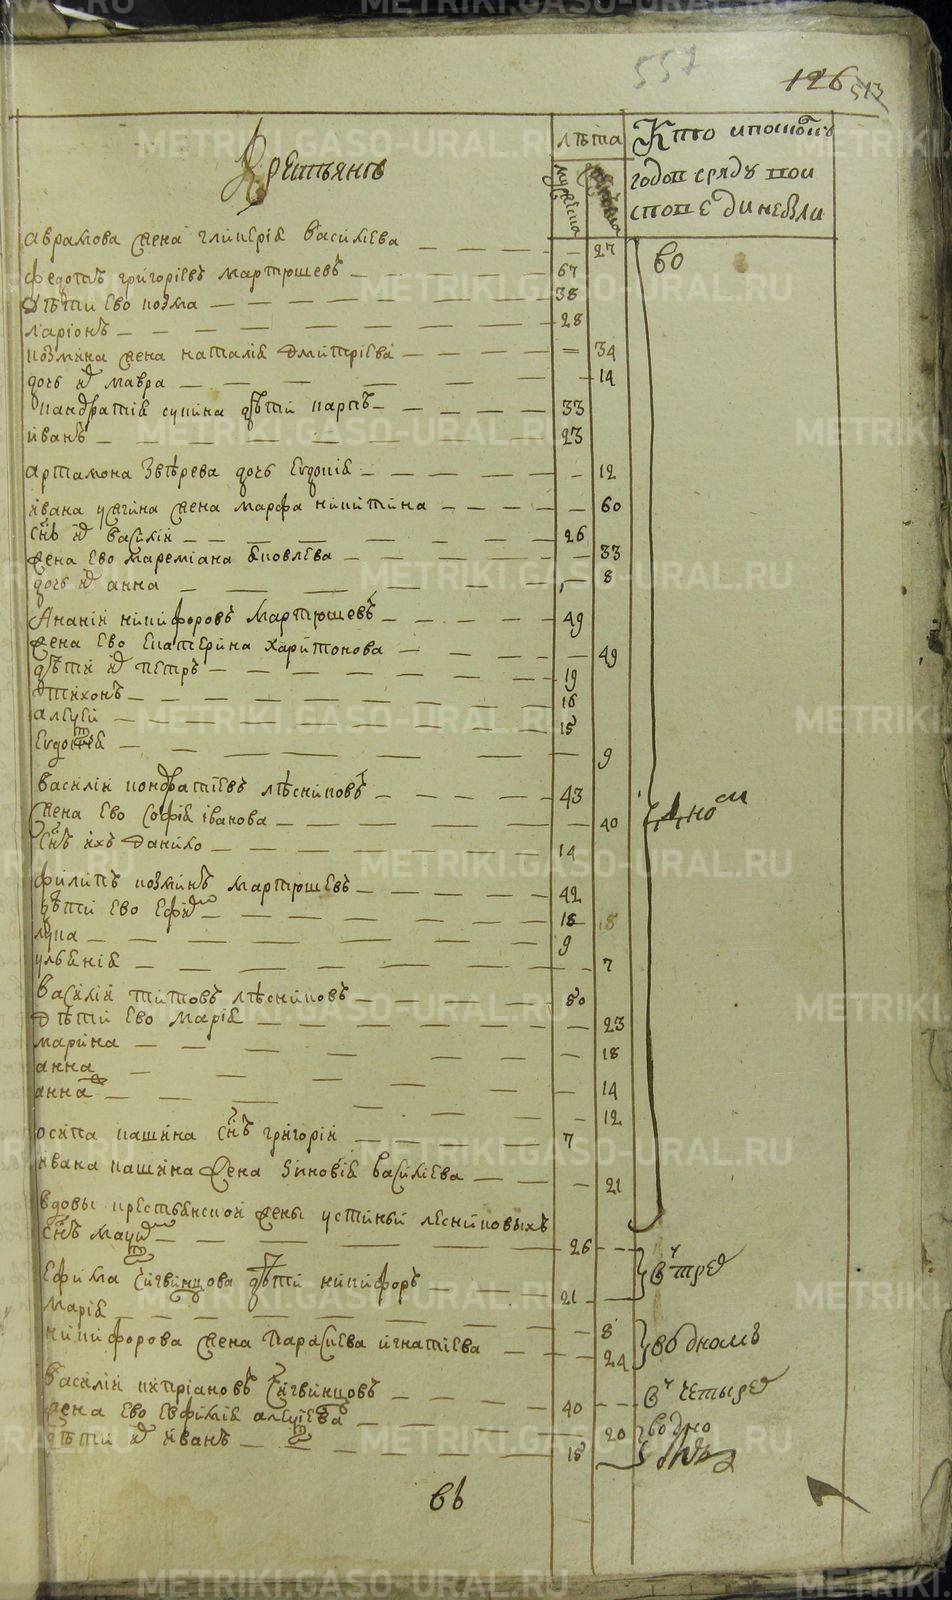 557
126 513
Крестьянъ
лѣта
мужеска
женска
Кто и поскол
годов сряду воис
повѣди небыли
аврамова жена гликерія василева 27
во
федотъ григориевъ мартюшевъ 67
дѣти ево козма 38
ларіонъ 28
козмина жена наталія дмитріева 34
дочь их мавра 14
кандратія сукина дѣти карпъ 33
иванъ 23
артамона звѣрева дочь евдокія 12
ивана жена марфа никитина 60
снъ их василій 26
жена ево маремiана яковлева 33
дочь их анна 8
Ананій никифоровъ мартюшевъ 49
жена ево екатерина харитонова 49
дѣти их петръ 19
тихонъ 16
алеѯей 15
евдокія 9
василій кондратиевъ лѣсниковъ 43
жена ево софія іванова 40
одном
снъ ихъ данило 14
филипъ козминъ мартюшевъ 42
дѣти ево ефим 18 18
лука 9
ульянія 7
василій титовъ лѣсниковъ 50
дѣти ево марія 23
марина 18
анна 14
анна 12
осипа пашина снъ григорій 7
ивана пашина жена зиновія василіева 21
вдовы крестьянской жены устиньи лесниковыхъ
снъ 26
в трех
ефима сигвинцова дѣти никифоръ 21
марія 8
никифорова жена парасева игнатіева 24
во дномъ
василій кипріановъ сигвинцовъ 40
в четырех
жена ево евфимія алеѯіева 20
во дно
дѣти их иванъ 18